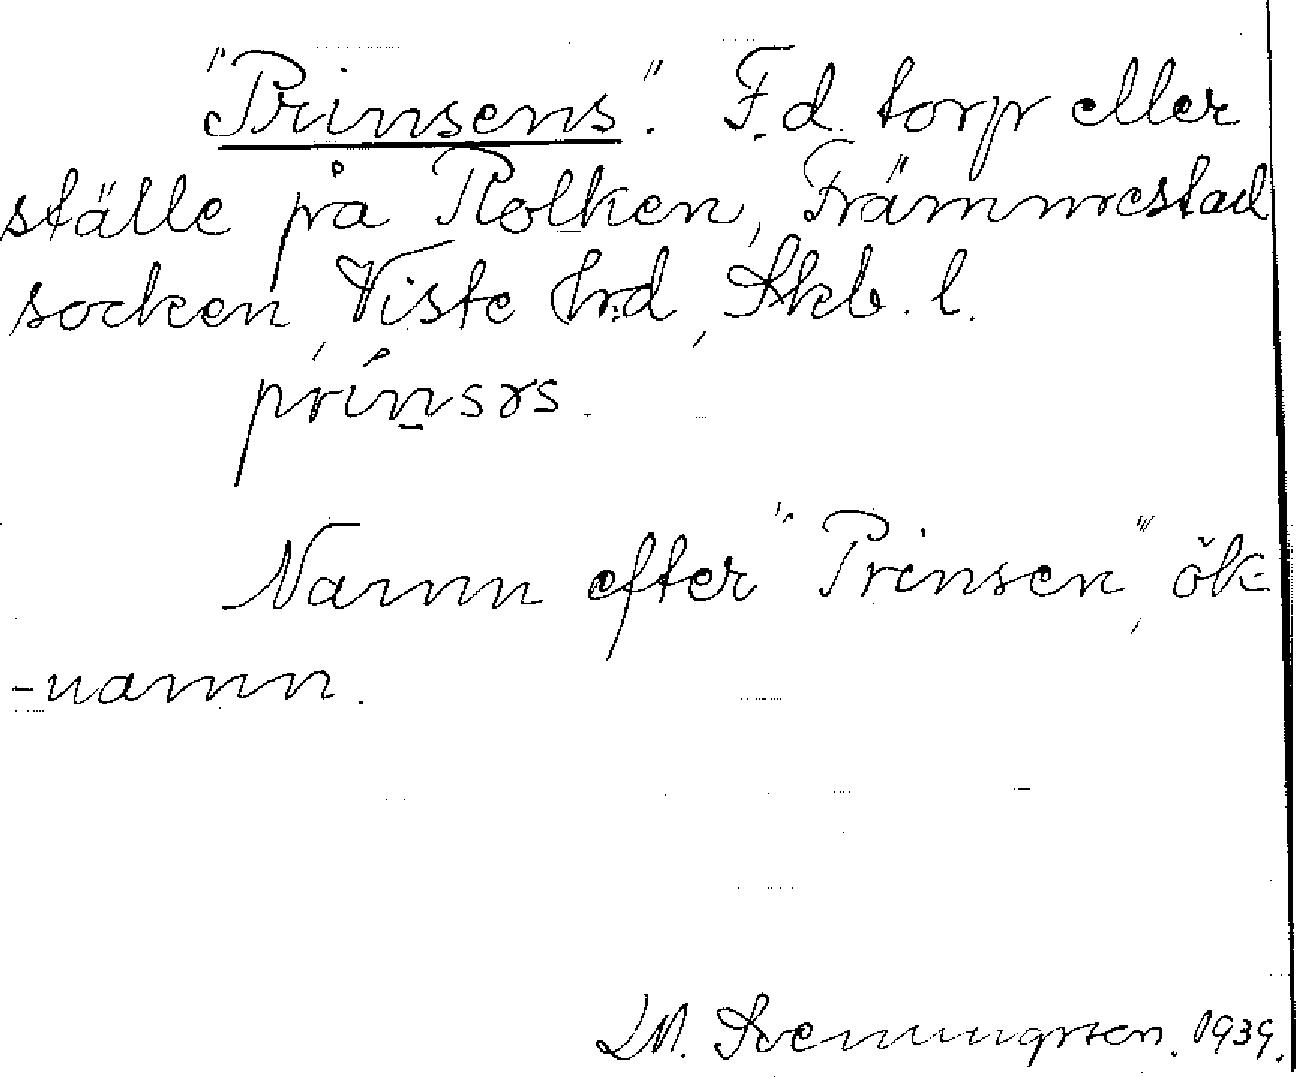 "Prinsens". F.d. torp eller
ställe på Rolken, Främmestad
socken, Viste hrd, Skb. l.
Namn efter "Prinsen", ök-
-namn.
M. Svenungsson. 1939.